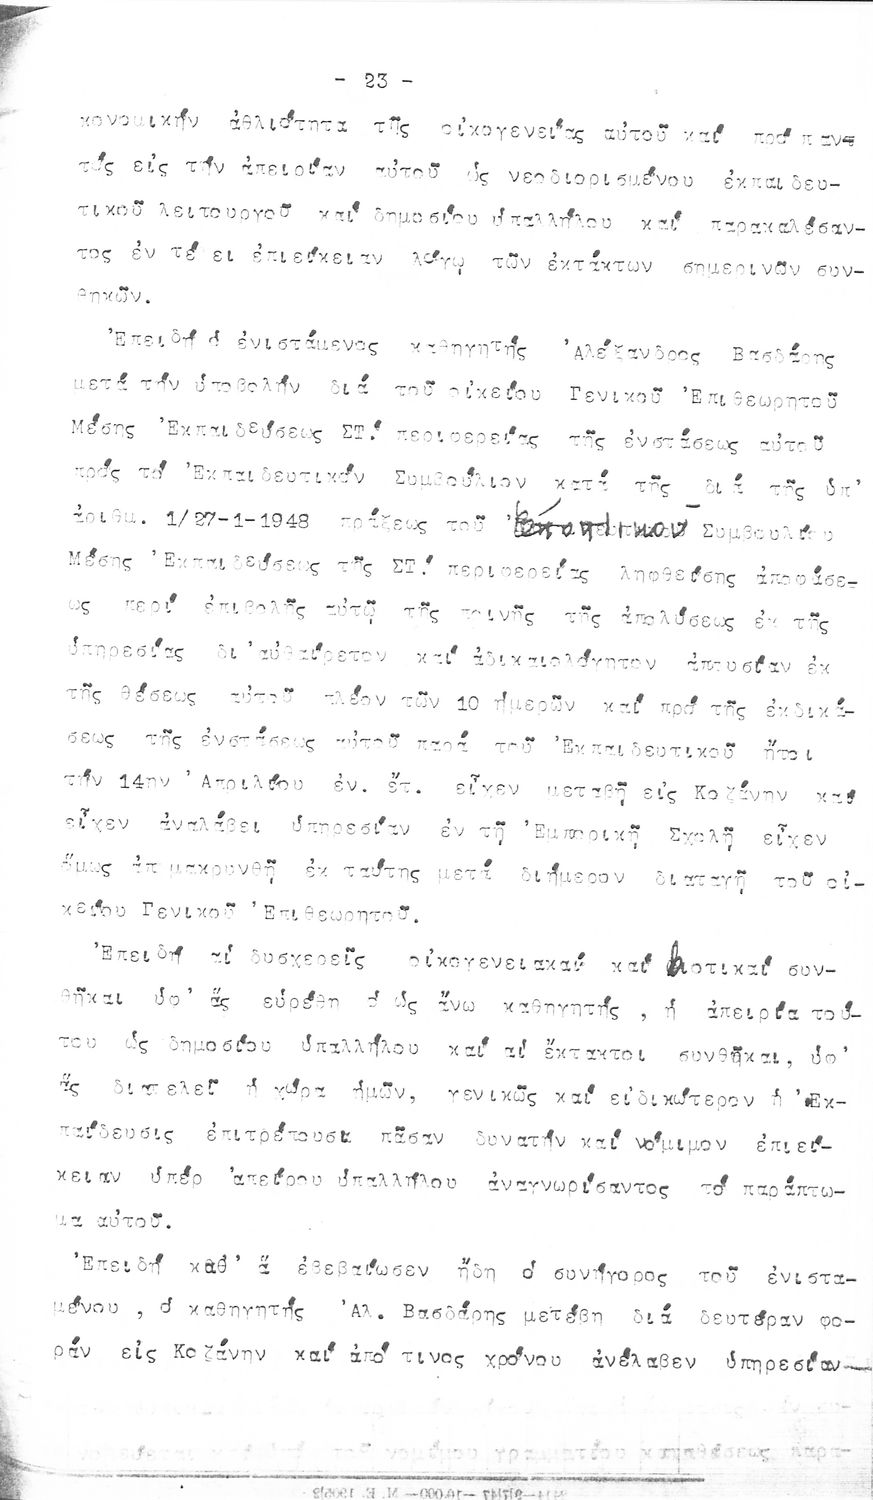 - 23 -
κονομικήν ἀθλιότητα τῆς οἰκογενείας αὐτοῦ καί πρό παν-
τός εἰς τήν ἀπειρίαν αὐτοῦ ὡς νεοδιορισμένου ἐκπαιδευ-
τικοῦ λειτουργοῦ καί δημοσίου ὑπαλλήλου καί παρακαλέσαν-
τος ἐν τέ ει ἐπιείκειαν λόγῳ τῶν ἐκτάκτων σημερινῶν συν-
θηκῶν.
Ἐπειδή ὁ ἐνιστάμενος καθηγητής Ἀλέξανδρος Βασδάρης
μετά τήν ὑποβολήν διά τοῦ οἰκείου Γενικοῦ Ἐπιθεωρητοῦ
Μέσης Ἐκπαιδεύσεως ΣΤ! περιφερείας τῆς ἐνστάσεως αὐτοῦ
πρός τό Ἐκπαιδευτικόν Συμβούλιον κατά τῆς διά τῆς ὑπ'
ἀριθμ. 1/27-1-1948 πράξεως τοῦ Συμβουλίου
Μέσης Ἐκπαιδεύσεως τῆς ΣΤ! περιφερείας ληφθείσης ἀποφάσε-
ως περί ἐπιβολῆς αὐτῷ τῆς ποινῆς τῆς ἀπολύσεως ἐκ τῆς
ὑπηρεσίας δι'αὐθαίρετον καί ἀδικαιολόγητον ἀπουσίαν ἐκ
τῆς θέσεως αὐτοῦ πλέον τῶν 10 ἡμερῶν καί πρό τῆς ἐκδικά-
σεως τῆς ἐνστάσεως αὐτοῦ παρά τοῦ Ἐκπαιδευτικοῦ ἤτοι
τήν 14ην Ἀπριλίου ἐν. ἔτ. εἶχεν μεταβῆ εἰς Κοζάνην καί
εἶχεν ἀναλάβει ὑπηρεσίαν ἐν τῇ Ἐμπορικῇ Σχολῇ εἶχεν
ὅμως ἀπ μακρυνθῆ ἐκ ταύτης μετά διήμερον διαταγῇ τοῦ οἰ-
κείου Γενικοῦ Ἐπιθεωρητοῦ.
Ἐπειδή αἱ δυσχερεῖς οἰκογενειακαί καί βιοτικαί συν-
θῆκαι ὑφ' ἅς εὑρέθη ὁ ὡς ἄνω καθηγητής , ἡ ἀπειρία τού-
του ὡς δημοσίου ὑπαλλήλου καί αἱ ἔκτακτοι συνθῆκαι, ὑφ'
ἅς διατελεῖ ἡ χώρα ἡμῶν, γενικῶς καί εἰδικώτερον ἡ Ἐκ-
παίδευσις ἐπιτρέπουσι πᾶσαν δυνατήν καί νόμιμον ἐπιεί-
κειαν ὑπέρ ἀπείρου ὑπαλλήλου ἀναγνωρίσαντος τό παράπτω-
μα αὐτοῦ.
Ἐπειδή καθ' ἅ ἐβεβαίωσεν ἤδη ὁ συνήγορος τοῦ ἐνιστα-
μένου , ὁ καθηγητής Ἀλ. Βασδάρης μετέβη διά δευτέραν φο-
ράν εἰς Κοζάνην καί ἀπό τινος χρόνου ἀνέλαβεν ὑπηρεσίαν